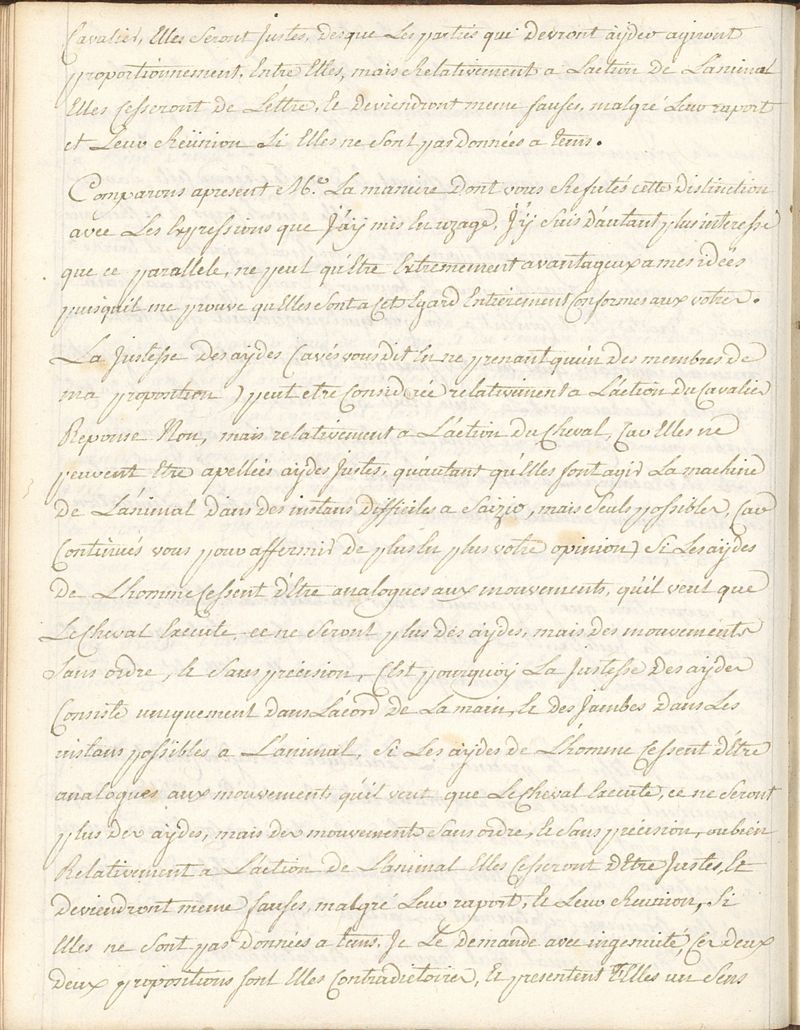 Cavalier, Elles Seront Justes, desque Les parties qui devront aÿder agiront
proportionnement, Entre Elles, mais Relativement a Laction de Lanimal
Elles Cesseront de Lêttre, Et deviendront meme fauses, malgré Leur raport
et Leur Reünion Si Elles ne Sont pas données a tems.
Comparons apresent Mr. La maniere dont vous Refutés cette distinction
avec Les Expressions que J'aÿ mis En uzage, J'ÿ Suis d'autant plus interessé
que ce parallele, ne peut qu'Etre Extremement avantageux a mes idées
puisquil me prouve qu'Elles Sont a Cet Egard Entierement Conformes aux votres.
La Justesse des aÿdes (avés vous dit En ne prenant qu'un des membres de
ma proposition) peut etre Considerée relativement a L'action du Cavalier
Reponse Non, mais relativement a L'action du Cheval, Car Elles ne
peuvent Etre apellées aÿdes Justes, qu'autant qu'Elles font agir La machine
de L'animal dans des instans difficiles a Saizir, mais Seuls possibles, (Car
Continués vous pour affermir de plus En plus votre opinion) Si Les aÿdes
de Lhomme Cessent d'Etre analogues aux mouvements, qu'il veut que
Le Cheval Execute, ce ne Seront plus des aÿdes, mais des mouvements
Sans ordre, Et Sans précision, C'Est pourquoÿ La Justesse des aÿdes
Consiste uniquement dans L'acord de La main, Et des Jambes dans Les
instans possibles a L'animal, Si Les aÿdes de L'homme Cessent d'Etre
analogues aux mouvements qu'il veut que Le Cheval Execute, ce ne Seront
plus des aÿdes, mais des mouvements Sans ordre, Et Sans précision, ou bien
Relativement a L'action de L'animal Elles Cesseront d'Etre Justes, Et
deviendront meme fauses, malgré Leur raport, Et Leur Reunion, Si
Elles ne Sont pas données a tems, Je Le demande avec ingenuité, Ces deux
deux propositions font Elles Contradictoires, Et presentent Elles un Sens